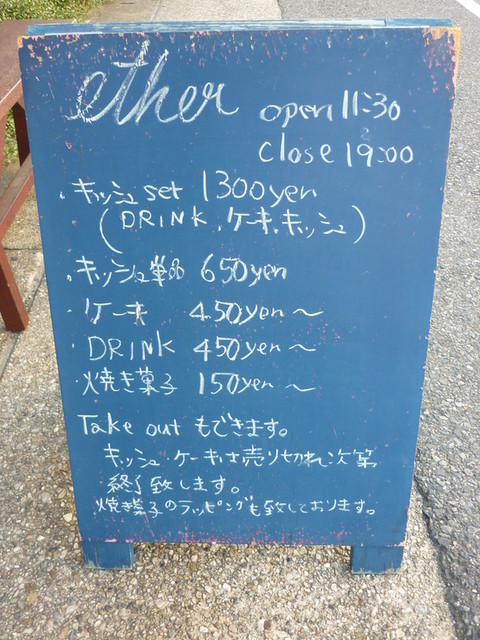 ether
open 11:30
close 19:00
・キッシュ set 1300yen
(DRINK.ケーキ.キッシュ)
・キッシュ単品 650yen
・ケーキ 450yen～
・DRINK 450yen～
・焼き菓子 150yen～
Take out もできます。
キッシュ・ケーキは売り切れ次第
終了致します。
焼き菓子のラッピングも致しております。